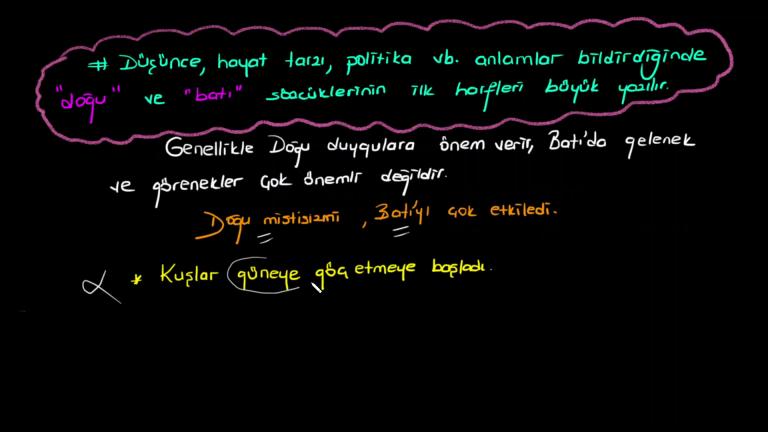 # Düşünce, hayat tarzı, politika vb. anlamlar bildirdiğinde
"doğu" ve "batı" sözcüklerinin ilk harfleri büyük yazılır.
Genellikle Doğu duygulara önem verir, Batı'da gelenek
ve görenekler çok önemli değildir.
Doğu mistisizmi, Batı'yı çok etkiledi.
* Kuşlar güneye göç etmeye başladı.